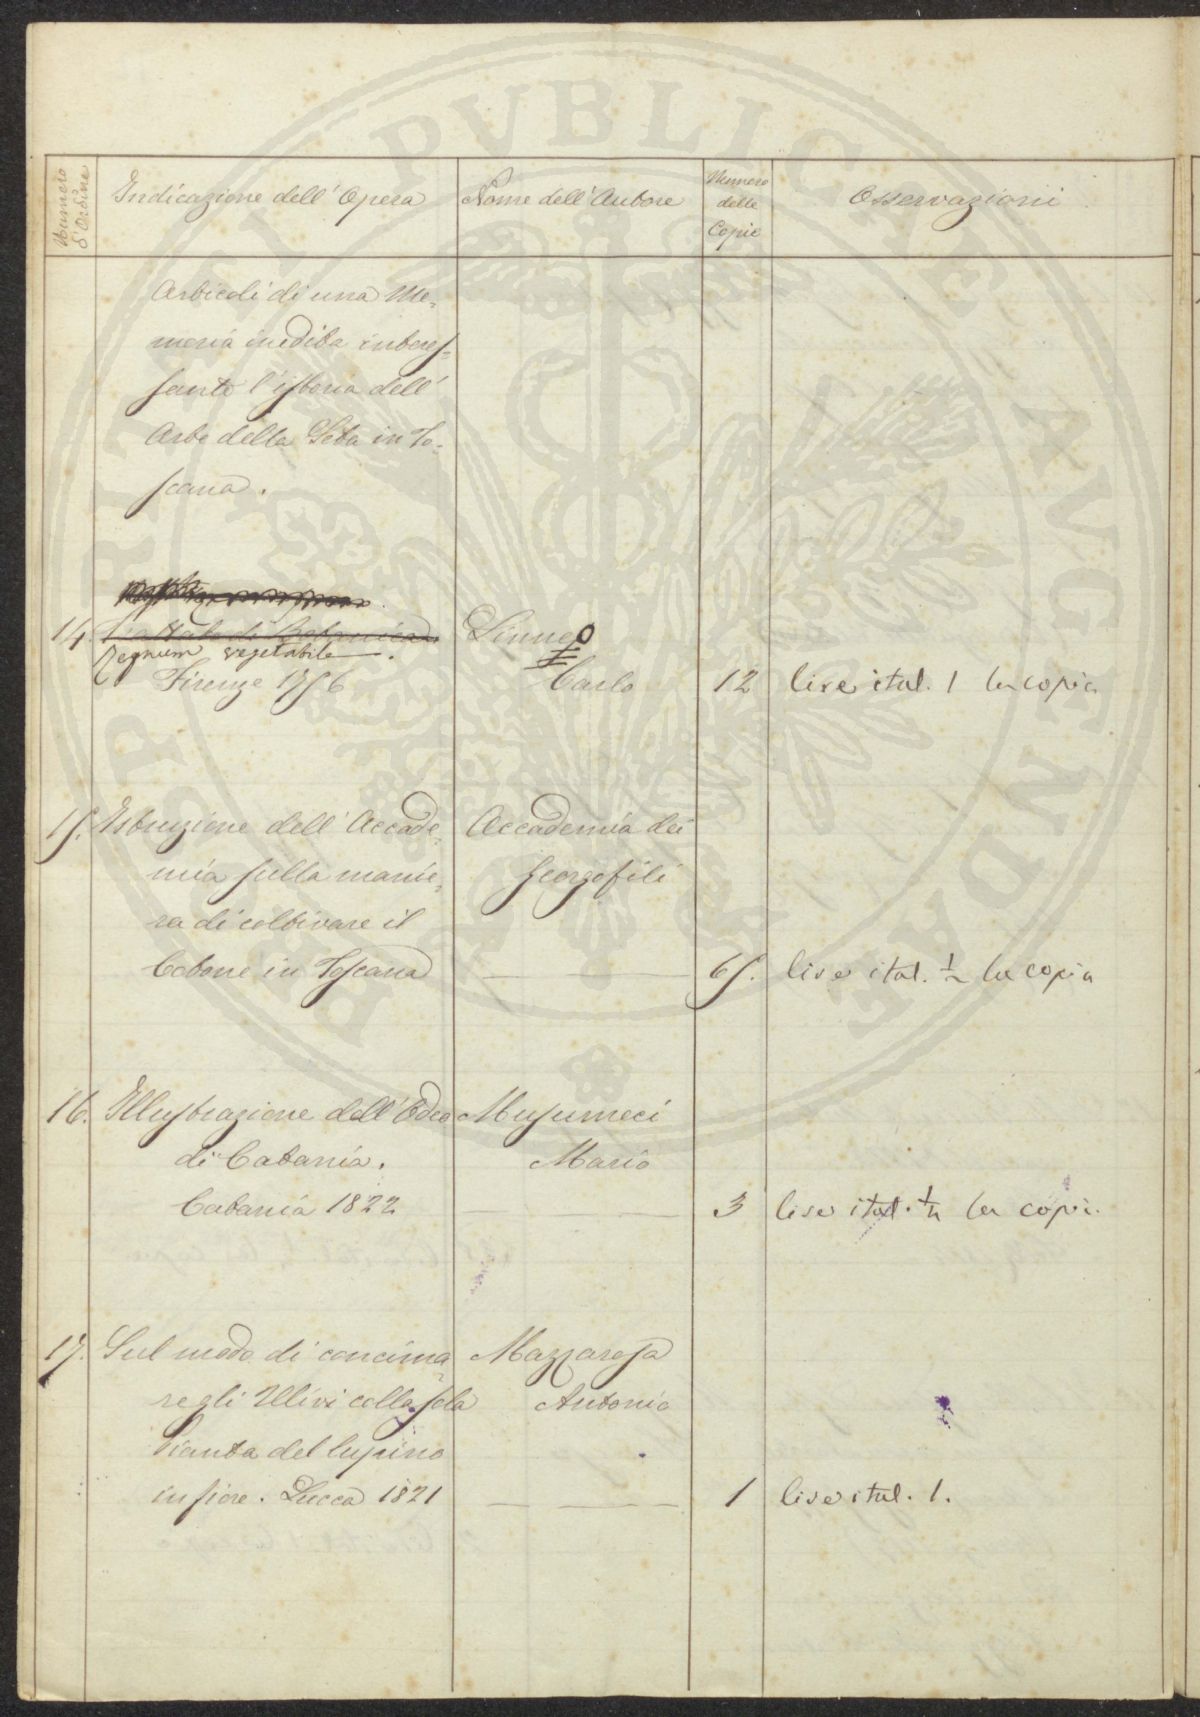 Numero d'Ordine
Indicazione dell'Opera
Nome dell'Autore
Numero delle Copie
Osservazioni
Articoli di una Me=
moria inedita interes=
sante l'istoria dell'
Arte della Seta in To=
scana.
14
Trattato di Botanica
Regnum vegetabile.
Firenze 1756
Linneo
Carlo
12
lire ital. 1 la copia
15.
Istruzione dell'Accade=
mia sulla manie=
ra di coltivare il
Cotone in Toscana
Accademia dei
Georgofili
65.
lire ital. ½ la copia
16.
Illustrazione dell'Odeo
di Catania.
Catania 1822
Musumeci
Mario
3
lire ital. ½ la copia
17.
Sul modo di concima=
re gli Ulivi colla sola
Pianta del lupino
in fiore. Lucca 1821
Mazzarosa
Antonio
1
lire ital. 1.
PVBLICAE AVGENDAE
PROSPERITATI